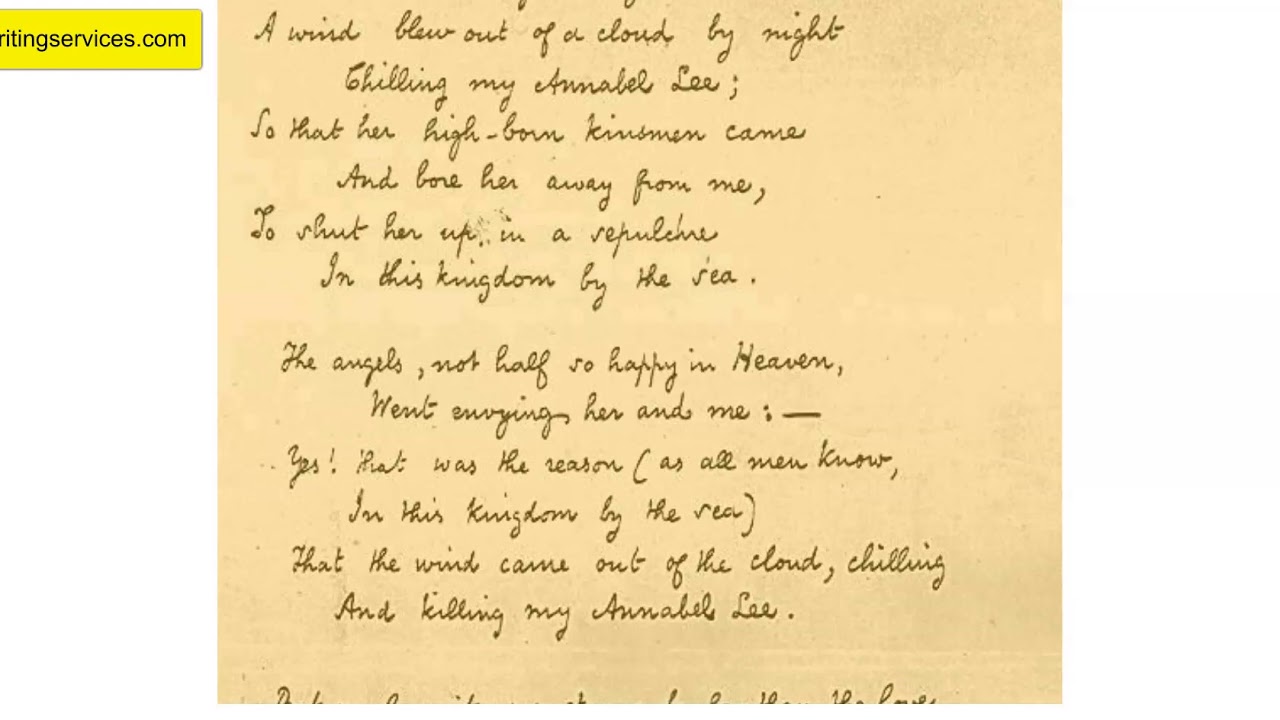 ritingservices.com
A wind blew out of a cloud by night
Chilling my Annabel Lee;
So that her high-born kinsmen came
And bore her away from me,
To shut her up in a sepulchre
In this kingdom by the sea.
The angels, not half so happy in Heaven,
Went envying her and me: —
Yes! that was the reason (as all men know,
In this kingdom by the sea)
That the wind came out of the cloud, chilling
And killing my Annabel Lee.
than the love